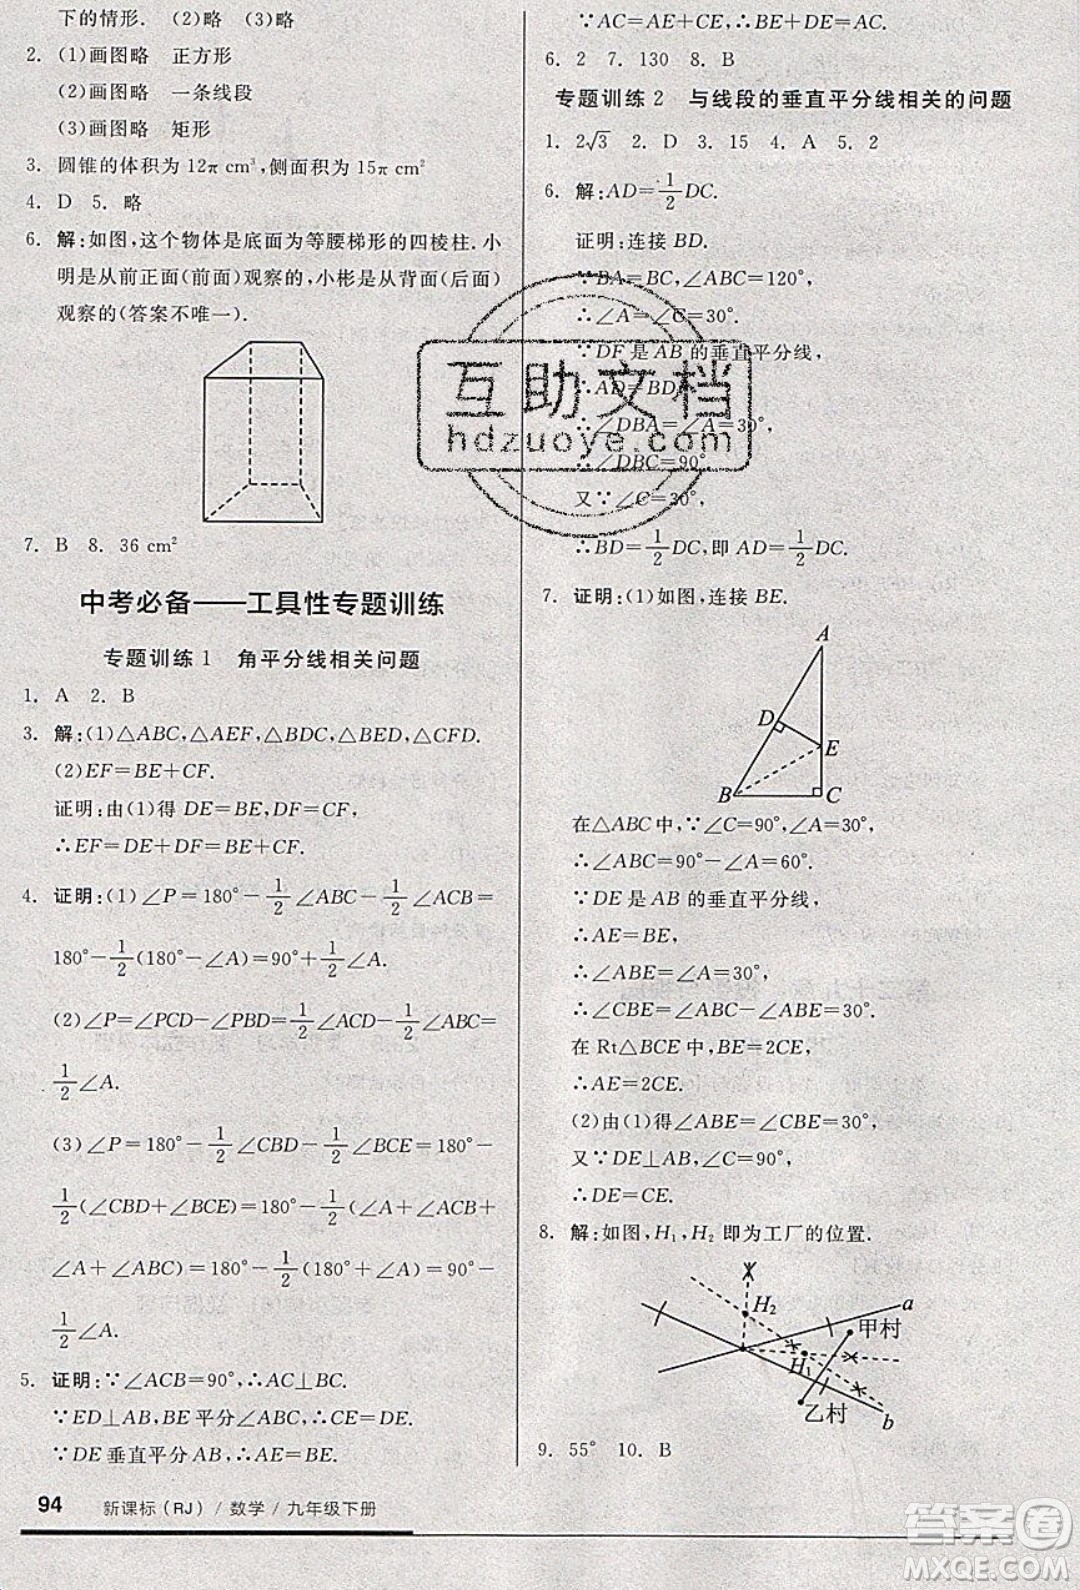 下的情形. (2)略 (3)略
2. (1)画图略 正方形
(2)画图略 一条线段
(3)画图略 矩形
3. 圆锥的体积为12π cm³,侧面积为15π cm²
4. D 5. 略
6. 解:如图,这个物体是底面为等腰梯形的四棱柱. 小
明是从前正面(前面)观察的,小彬是从背面(后面)
观察的(答案不唯一).
7. B 8. 36 cm²
中考必备——工具性专题训练
专题训练1 角平分线相关问题
1. A 2. B
3. 解:(1)△ABC,△AEF,△BDC,△BED,△CFD.
(2)EF=BE+CF.
证明:由(1)得 DE=BE,DF=CF,
∴EF=DE+DF=BE+CF.
4. 证明:(1)∠P=180°-1/2∠ABC-1/2∠ACB=
180°-1/2(180°-∠A)=90°+1/2∠A.
(2)∠P=∠PCD-∠PBD=1/2∠ACD-1/2∠ABC=
1/2∠A.
(3)∠P=180°-1/2∠CBD-1/2∠BCE=180°-
1/2(∠CBD+∠BCE)=180°-1/2(∠A+∠ACB+
∠A+∠ABC)=180°-1/2(180°+∠A)=90°-
1/2∠A.
5. 证明:∵∠ACB=90°,∴AC⊥BC.
∵ED⊥AB,BE平分∠ABC,∴CE=DE.
∵DE垂直平分AB,∴AE=BE.
∵AC=AE+CE,∴AC=BE+DE.
6. 2 7. 130 8. B
专题训练2 与线段的垂直平分线相关的问题
1. 2√3 2. D 3. 15 4. A 5. 2
6. 解:AD=1/2DC.
证明:连接BD.
∵BA=BC,∠ABC=120°,
∴∠A=∠C=30°.
∵DF是AB的垂直平分线,
∴AD=BD,
∴∠DBA=∠A=30°,
∴∠DBC=90°.
又∵∠C=30°,
∴BD=1/2DC,即AD=1/2DC.
7. 证明:(1)如图,连接BE.
A
D
E
B
C
在△ABC中,∵∠C=90°,∠A=30°,
∴∠ABC=90°-∠A=60°.
∵DE是AB的垂直平分线,
∴AE=BE,
∴∠ABE=∠A=30°,
∴∠CBE=∠ABC-∠ABE=30°.
在Rt△BCE中,BE=2CE,
∴AE=2CE.
(2)由(1)得∠ABE=∠CBE=30°,
又∵DE⊥AB,∠C=90°,
∴DE=CE.
8. 解:如图,H₁,H₂即为工厂的位置.
H₂
a
甲村
H₁
乙村
b
9. 55° 10. B
94 新课标(RJ)/数学/九年级下册
互助文档
hdzuoye.com
答案圈
MXQE.COM